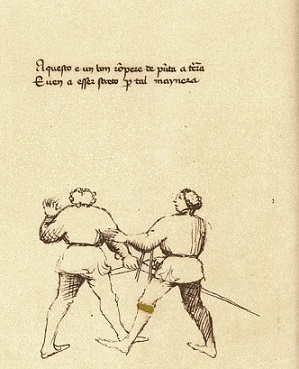 A questo e un bon rõpere de pũta a tẽra
E uen a esser streto ꝑ tal maynera